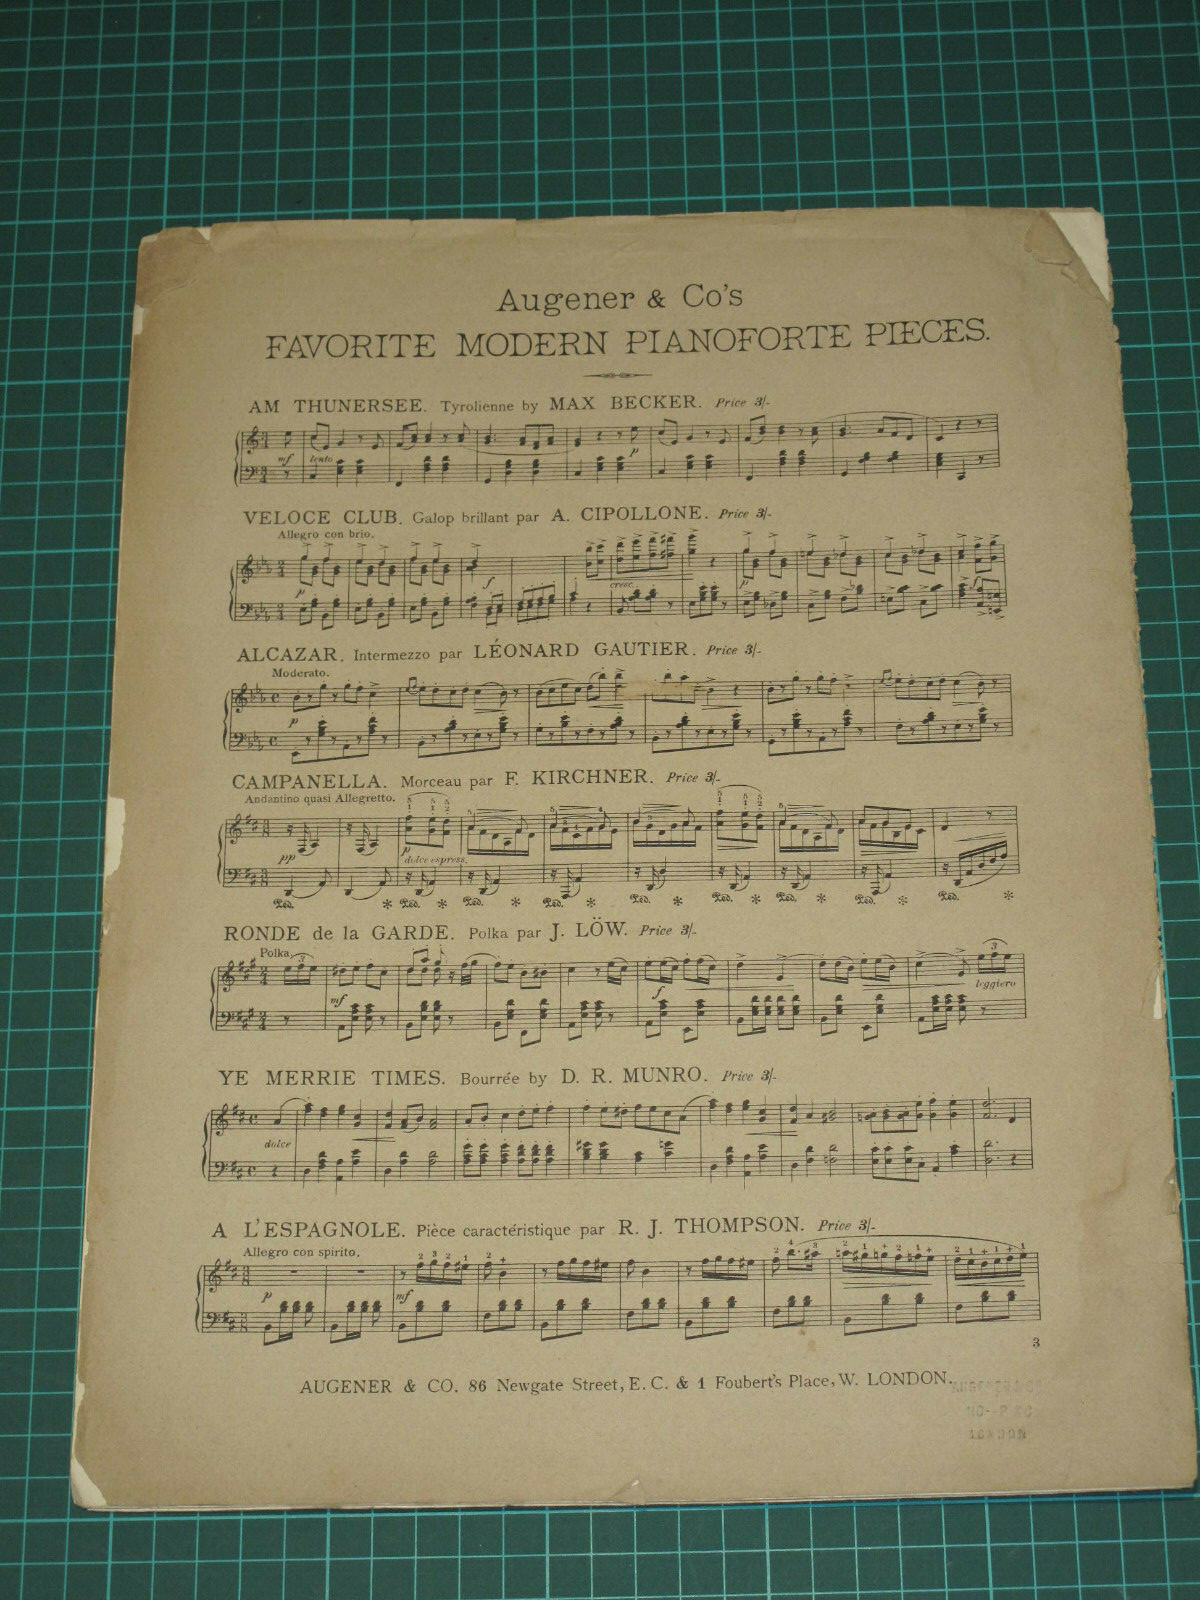 Augener & Co's
FAVORITE MODERN PIANOFORTE PIECES.
AM THUNERSEE. Tyrolienne by MAX BECKER. Price 3/-
mf lento p
VELOCE CLUB. Galop brillant par A. CIPOLLONE. Price 3/-
Allegro con brio.
p f cresc. p f
ALCAZAR. Intermezzo par LÉONARD GAUTIER. Price 3/-
Moderato.
p
CAMPANELLA. Morceau par F. KIRCHNER. Price 3/-
Andantino quasi Allegretto.
pp p dolce espress.
Ped. * Ped. * Ped. * Ped. * Ped. * Ped. * Ped. * Ped. * Ped. *
RONDE de la GARDE. Polka par J. LÖW. Price 3/-
Polka.
3 mf f 3 leggiero
YE MERRIE TIMES. Bourrée by D. R. MUNRO. Price 3/-
dolce
A L'ESPAGNOLE. Pièce caractéristique par R. J. THOMPSON. Price 3/-
Allegro con spirito.
p mf
3
AUGENER & CO. 86 Newgate Street, E. C. & 1 Foubert's Place, W. LONDON.
LONDON